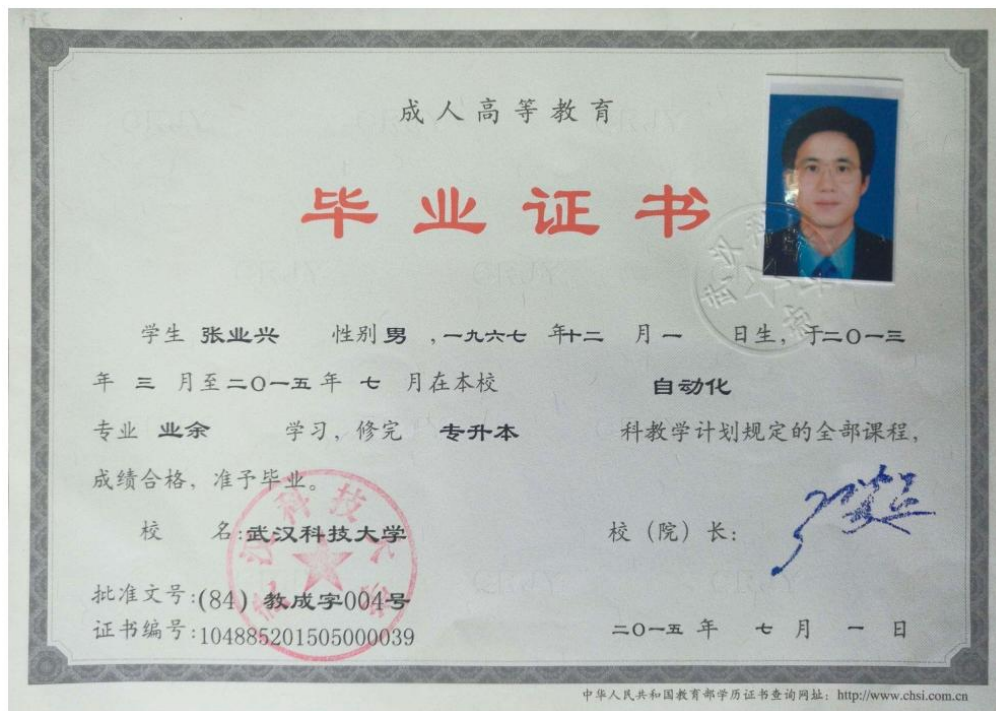 成人高等教育
毕业证书
学生 张业兴 性别 男 ,一九六七 年十二 月 一 日生, 于二〇一三
年 三 月至二〇一五年 七 月在本校 自动化
专业 业余 学习, 修完 专升本 科教学计划规定的全部课程,
成绩合格, 准予毕业。
校 名:武汉科技大学 校(院)长:
批准文号:(84) 教成字004号
证书编号:104885201505000039 二〇一五 年 七 月 一 日
中华人民共和国教育部学历证书查询网址: http://www.chsi.com.cn